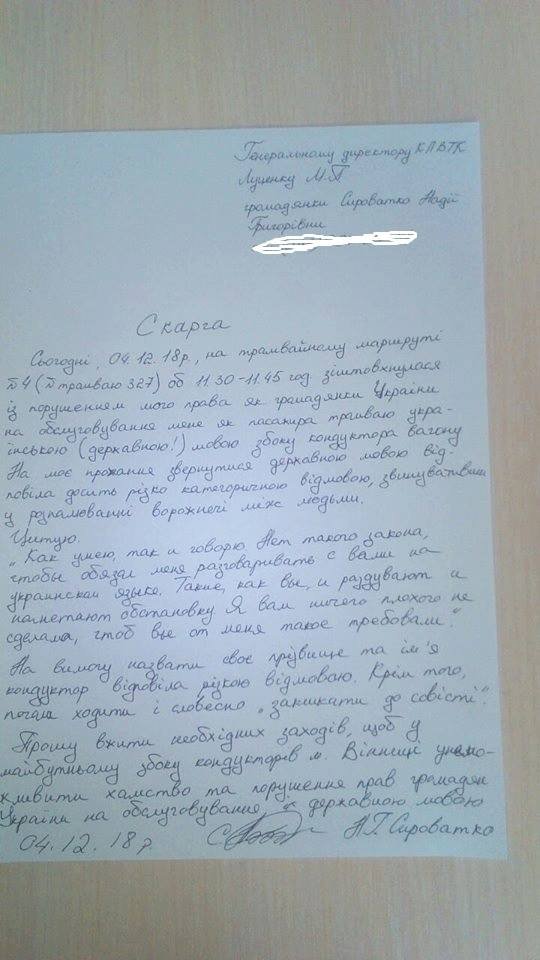 Генеральному директору КП ВТК
Луценку М.П
громадянки Сироватко Надії
Григорівни
Скарга
Сьогодні, 04.12.18р., на трамвайному маршруті
№4 (№ трамваю 327) об 11.30-11.45 год зіштовхнулася
із порушенням мого права як громадянки України
на обслуговування мене як пасажира трамваю укра-
їнською (державною!) мовою збоку кондуктора вагону
На моє прохання звернутися державною мовою від-
повіла досить різко категоричною відмовою, звинувативши
у розпалюванні ворожнечі між людьми.
Цитую.
„Как умею, так и говорю. Нет такого закона,
чтобы обязал меня разговаривать с вами на
украинском языке. Такие, как вы, и раздувают и
нагнетают обстановку. Я вам ничего плохого не
сделала, чтоб вы от меня такое требовали."
На вимогу назвати своє прізвище та ім'я
кондуктор відповіла різкою відмовою. Крім того,
почала ходити і словесно „закликати до совісті".
Прошу вжити необхідних заходів, щоб у
майбутньому збоку кондукторів м. Вінниці унемо-
жливити хамство та порушення прав громадян
України на обслуговування їх державною мовою
04.12.18р. Н.Г. Сироватко